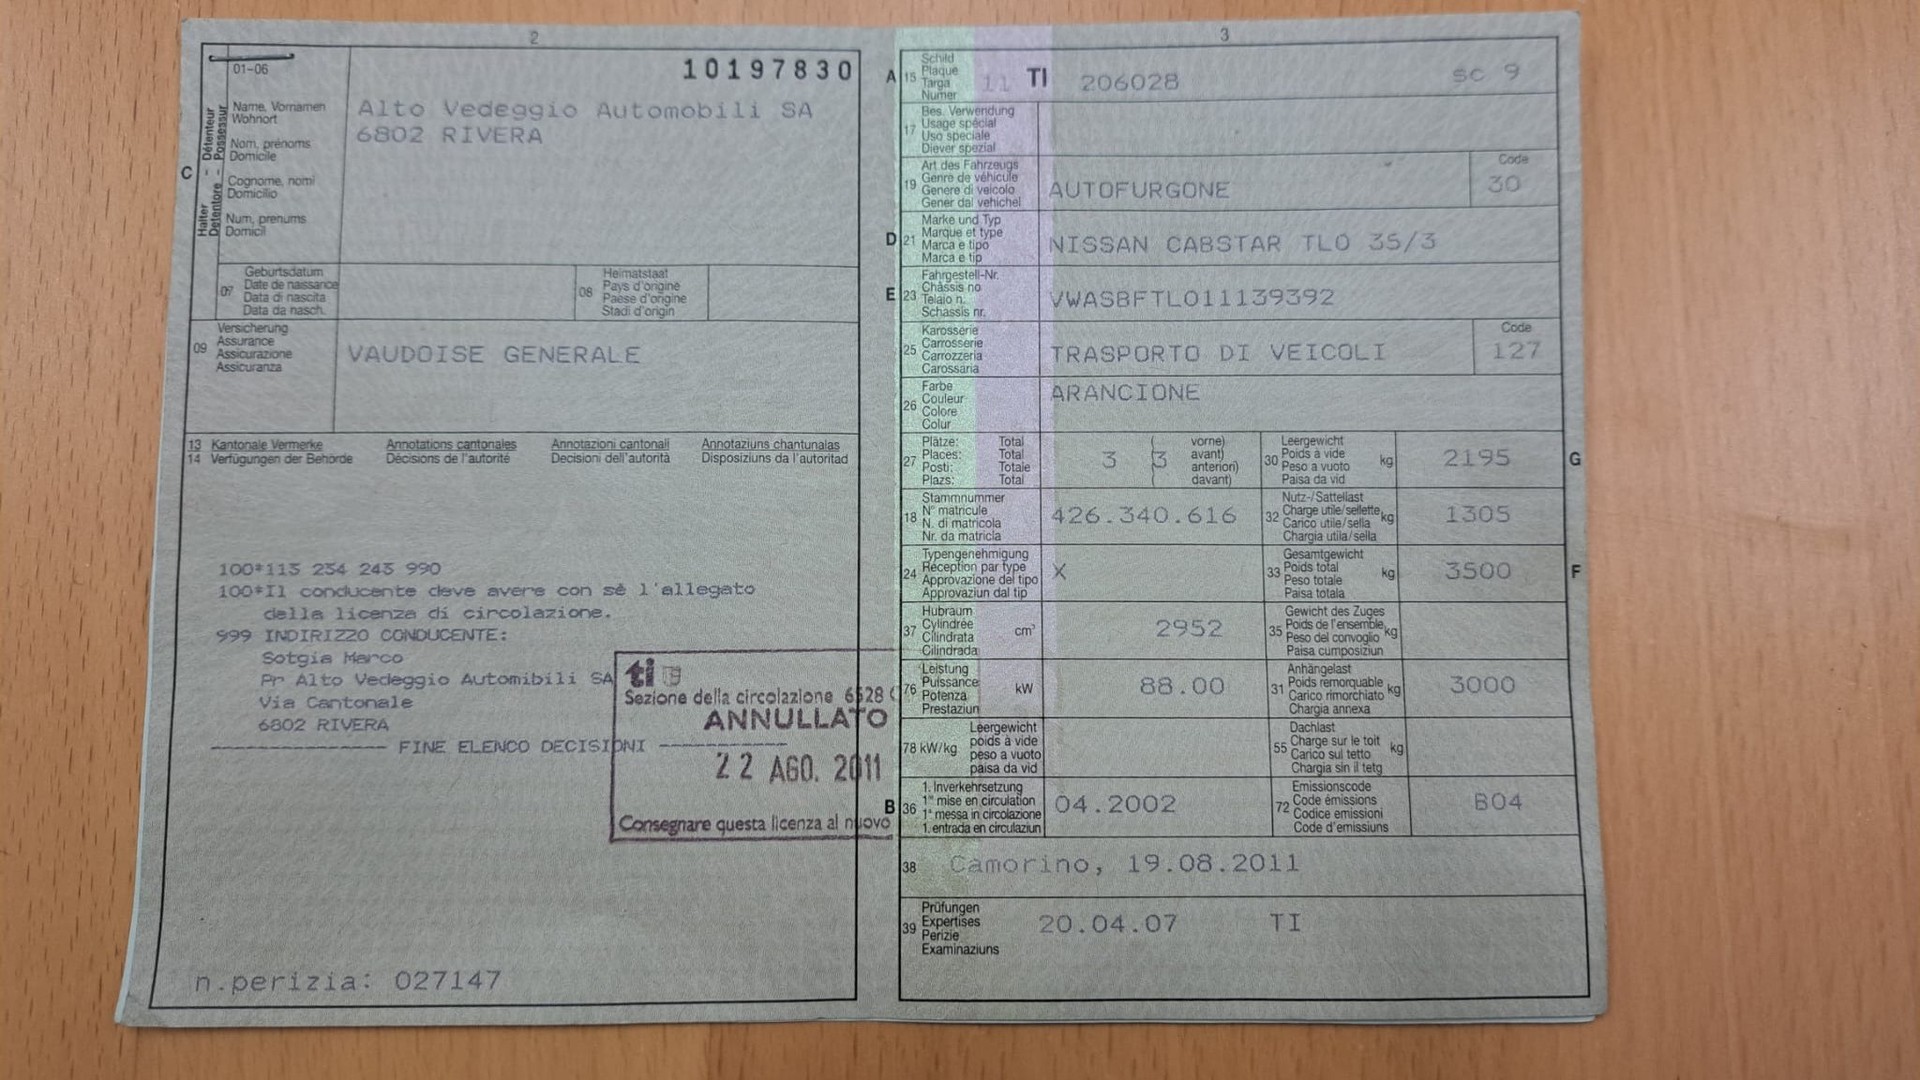 2
01-06
10197830
C
Halter - Détenteur
Detentore - Possessur
Name, Vornamen
Wohnort
Nom, prénoms
Domicile
Cognome, nomi
Domicilio
Num, prenums
Domicil
Alto Vedeggio Automobili SA
6802 RIVERA
07
Geburtsdatum
Date de naissance
Data di nascita
Data da nasch.
08
Heimatstaat
Pays d'origine
Paese d'origine
Stadi d'origin
09
Versicherung
Assurance
Assicurazione
Assicuranza
VAUDOISE GENERALE
13 Kantonale Vermerke Annotations cantonales Annotazioni cantonali Annotaziuns chantunalas
14 Verfügungen der Behörde Décisions de l'autorité Decisioni dell'autorità Disposiziuns da l'autoritad
100*113 234 243 990
100*Il conducente deve avere con sè l'allegato
della licenza di circolazione.
999 INDIRIZZO CONDUCENTE:
Sotgia Marco
Pr Alto Vedeggio Automibili SA
Via Cantonale
6802 RIVERA
--------------- FINE ELENCO DECISIONI -----------
ti
Sezione della circolazione 6528 C
ANNULLATO
22 AGO. 2011
Consegnare questa licenza al nuovo
n.perizia: 027147
3
A
15
Schild
Plaque
Targa
Numer
11 TI 206028 sc 9
17
Bes. Verwendung
Usage spécial
Uso speciale
Diever spezial
19
Art des Fahrzeugs
Genre de véhicule
Genere di veicolo
Gener dal vehichel
AUTOFURGONE
Code
30
D
21
Marke und Typ
Marque et type
Marca e tipo
Marca e tip
NISSAN CABSTAR TLO 35/3
E
23
Fahrgestell-Nr.
Châssis no
Telaio n.
Schassis nr.
VWASBFTL011139392
25
Karosserie
Carrosserie
Carrozzeria
Carossaria
TRASPORTO DI VEICOLI
Code
127
26
Farbe
Couleur
Colore
Colur
ARANCIONE
27
Plätze: Total
Places: Total
Posti: Totale
Plazs: Total
3 (3
vorne)
avant)
anteriori)
davant)
30
Leergewicht
Poids à vide
Peso a vuoto
Paisa da vid
kg
2195
G
18
Stammnummer
N° matricule
N. di matricola
Nr. da matricla
426.340.616
32
Nutz-/Sattellast
Charge utile/sellette
Carico utile/sella
Chargia utila/sella
kg
1305
24
Typengenehmigung
Réception par type
Approvazione del tipo
Approvaziun dal tip
X
33
Gesamtgewicht
Poids total
Peso totale
Paisa totala
kg
3500
F
37
Hubraum
Cylindrée
Cilindrata
Cilindrada
cm³
2952
35
Gewicht des Zuges
Poids de l'ensemble
Peso del convoglio
Paisa cumposiziun
kg
76
Leistung
Puissance
Potenza
Prestaziun
kW
88.00
31
Anhängelast
Poids remorquable
Carico rimorchiato
Chargia annexa
kg
3000
78 kW/kg
Leergewicht
poids à vide
peso a vuoto
paisa da vid
55
Dachlast
Charge sur le toit
Carico sul tetto
Chargia sin il tetg
kg
B
36
1. Inverkehrsetzung
1re mise en circulation
1a messa in circolazione
1. entrada en circulaziun
04.2002
72
Emissionscode
Code émissions
Codice emissioni
Code d'emissiuns
B04
38
Camorino, 19.08.2011
39
Prüfungen
Expertises
Perizie
Examinaziuns
20.04.07 TI